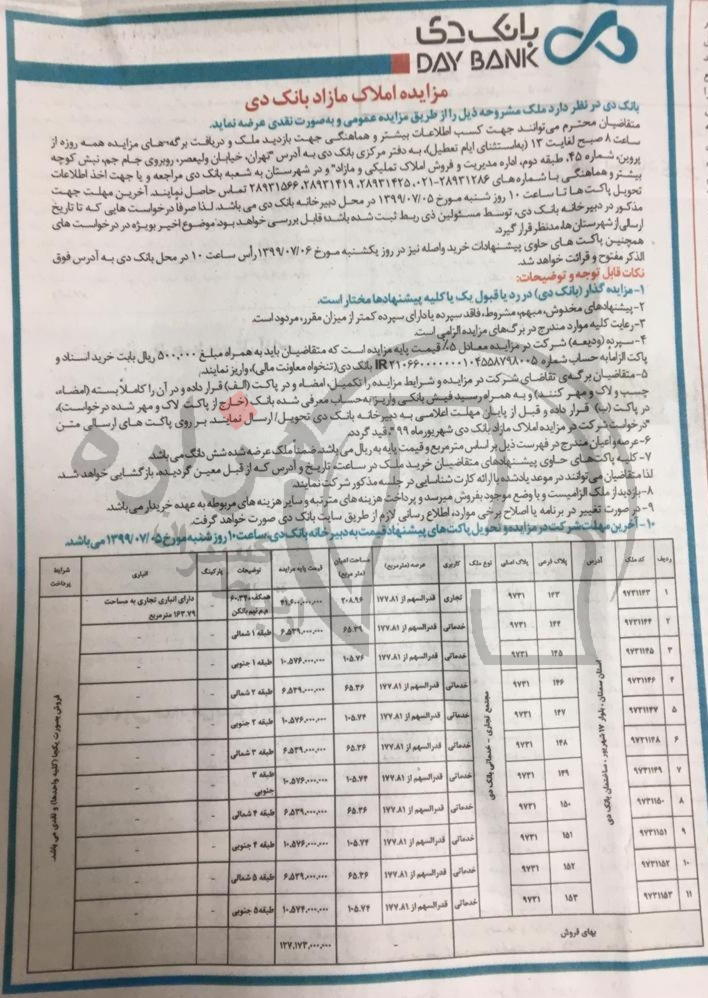 بانک دی
DAY BANK
مزایده املاک مازاد بانک دی
بانک دی در نظر دارد ملک مشروحه ذیل را از طریق مزایده عمومی و به‌صورت نقدی عرضه نماید.
متقاضیان محترم می‌توانند جهت کسب اطلاعات بیشتر و هماهنگی جهت بازدید ملک و دریافت برگه‌های مزایده همه روزه از
ساعت ۸ صبح لغایت ۱۳ (به‌استثنای ایام تعطیل)، به دفتر مرکزی بانک دی به آدرس "تهران، خیابان ولیعصر، روبروی جام جم، نبش کوچه
پروین، شماره ۴۵، طبقه دوم، اداره مدیریت و فروش املاک تملیکی و مازاد" و در شهرستان به شعبه بانک دی مراجعه و یا جهت اخذ اطلاعات
بیشتر و هماهنگی با شماره‌های ۲۸۹۳۱۲۸۶-۰۲۱، ۲۸۹۳۱۴۲۵، ۲۸۹۳۱۴۱۹، ۲۸۹۳۱۵۶۶ تماس حاصل نمایند. آخرین مهلت جهت
تحویل پاکت ها تا ساعت ۱۰ روز شنبه مورخ ۱۳۹۹/۰۷/۰۵ در محل دبیرخانه بانک دی می باشد. لذا صرفاً درخواست هایی که تا تاریخ
مذکور در دبیرخانه بانک دی، توسط مسئولین ذی ربط ثبت شده باشد؛ قابل بررسی خواهد بود. موضوع اخیر بویژه در درخواست های
ارسالی از شهرستان ها، مدنظر قرار گیرد.
همچنین پاکت های حاوی پیشنهادات خرید واصله نیز در روز یکشنبه مورخ ۱۳۹۹/۰۷/۰۶ رأس ساعت ۱۰ در محل بانک دی به آدرس فوق
الذکر مفتوح و قرائت خواهد شد.
نکات قابل توجه و توضیحات:
۱-مزایده گذار (بانک دی) در رد یا قبول یک یا کلیه پیشنهادها مختار است.
۲-پیشنهادهای مخدوش، مبهم، مشروط، فاقد سپرده یا دارای سپرده کمتر از میزان مقرر، مردود است.
۳-رعایت کلیه موارد مندرج در برگ‌های مزایده الزامی است.
۴-سپرده (ودیعه) شرکت در مزایده معادل ۵٪ قیمت پایه مزایده است که متقاضیان باید به همراه مبلغ ۵۰۰,۰۰۰ ریال بابت خرید اسناد و
پاکت الزاما به حساب شماره بانک دی (تنخواه معاونت مالی)، واریز نمایند.
۵-متقاضیان برگه‌ی تقاضای شرکت در مزایده و شرایط مزایده را تکمیل، امضاء و در پاکت (الف) قرار داده و در آن را کاملاً بسته (امضاء،
چسب و لاک و مهر کنند) و به همراه رسید فیش بانکی واریز به‌حساب معرفی شده بانک (خارج از پاکت لاک و مهر شده درخواست)،
در پاکت (ب) قرار داده و قبل از پایان مهلت اعلامی به دبیرخانه بانک دی تحویل/ ارسال نمایند. بر روی پاکت های ارسالی متن
"درخواست شرکت در مزایده املاک مازاد بانک دی شهریورماه ۹۹" قید گردد.
۶-عرصه و اعیان مندرج در فهرست ذیل بر اساس مترمربع و قیمت پایه به ریال می‌باشد. ضمناً ملک عرضه شده شش دانگ می‌باشد.
۷- کلیه پاکت‌های حاوی پیشنهادهای متقاضیان خرید ملک در ساعت، تاریخ و آدرس که از قبل معین گردیده، بازگشایی خواهد شد.
لذا متقاضیان می‌توانند در موعد یادشده با ارائه کارت شناسایی در جلسه مذکور شرکت نمایند.
۸-بازدید از ملک الزامیست و با وضع موجود بفروش میرسد و پرداخت هزینه های مترتبه و سایر هزینه های مربوطه به عهده خریدار می‌باشد.
۹- در صورت تغییر در برنامه یا اصلاح برخی موارد، اطلاع رسانی لازم از طریق سایت بانک دی صورت خواهد گرفت.
۱۰-آخرین مهلت شرکت در مزایده و تحویل پاکت‌های پیشنهاد قیمت به دبیرخانه بانک دی، ساعت ۱۰ روز شنبه مورخ ۱۳۹۹/۰۷/۰۵ می‌باشد.
ردیف کد ملک آدرس پلاک فرعی پلاک اصلی نوع ملک کاربری عرصه (مترمربع) مساحت اعیان (متر مربع) قیمت پایه مزایده توضیحات پارکینگ انباری شرایط پرداخت
۱ ۹۷۳۱۱۴۳ ۱۴۳ ۹۷۳۱ تجاری قدرالسهم از ۱۷۷.۸۱ ۲۰۸.۹۶ ۴۱,۶۰۰,۰۰۰,۰۰۰ همکف+۶۰.۳۴ م.م نیم بالکن - دارای انباری تجاری به مساحت ۱۶۳.۷۹ مترمربع
۲ ۹۷۳۱۱۴۴ ۱۴۴ ۹۷۳۱ خدماتی قدرالسهم از ۱۷۷.۸۱ ۶۵.۳۹ ۶,۵۳۹,۰۰۰,۰۰۰ طبقه ۱ شمالی - -
۳ ۹۷۳۱۱۴۵ ۱۴۵ ۹۷۳۱ خدماتی قدرالسهم از ۱۷۷.۸۱ ۱۰۵.۷۶ ۱۰,۵۷۶,۰۰۰,۰۰۰ طبقه ۱ جنوبی - -
۴ ۹۷۳۱۱۴۶ ۱۴۶ ۹۷۳۱ خدماتی قدرالسهم از ۱۷۷.۸۱ ۶۵.۳۶ ۶,۵۳۹,۰۰۰,۰۰۰ طبقه ۲ شمالی - -
۵ ۹۷۳۱۱۴۷ ۱۴۷ ۹۷۳۱ خدماتی قدرالسهم از ۱۷۷.۸۱ ۱۰۵.۷۴ ۱۰,۵۷۶,۰۰۰,۰۰۰ طبقه ۲ جنوبی - -
۶ ۹۷۳۱۱۴۸ ۱۴۸ ۹۷۳۱ خدماتی قدرالسهم از ۱۷۷.۸۱ ۶۵.۳۶ ۶,۵۳۹,۰۰۰,۰۰۰ طبقه ۳ شمالی - -
۷ ۹۷۳۱۱۴۹ ۱۴۹ ۹۷۳۱ خدماتی قدرالسهم از ۱۷۷.۸۱ ۱۰۵.۷۴ ۱۰,۵۷۶,۰۰۰,۰۰۰ طبقه ۳ جنوبی - -
۸ ۹۷۳۱۱۵۰ ۱۵۰ ۹۷۳۱ خدماتی قدرالسهم از ۱۷۷.۸۱ ۶۵.۳۶ ۶,۵۳۹,۰۰۰,۰۰۰ طبقه ۴ شمالی - -
۹ ۹۷۳۱۱۵۱ ۱۵۱ ۹۷۳۱ خدماتی قدرالسهم از ۱۷۷.۸۱ ۱۰۵.۷۴ ۱۰,۵۷۶,۰۰۰,۰۰۰ طبقه ۴ جنوبی - -
۱۰ ۹۷۳۱۱۵۲ ۱۵۲ ۹۷۳۱ خدماتی قدرالسهم از ۱۷۷.۸۱ ۶۵.۳۶ ۶,۵۳۹,۰۰۰,۰۰۰ طبقه ۵ شمالی - -
۱۱ ۹۷۳۱۱۵۳ ۱۵۳ ۹۷۳۱ خدماتی قدرالسهم از ۱۷۷.۸۱ ۱۰۵.۷۴ ۱۰,۵۷۴,۰۰۰,۰۰۰ طبقه ۵ جنوبی - -
استان سمنان - بلوار ۱۷ شهریور - ساختمان بانک دی
مجتمع تجاری - خدماتی بانک دی
فروش بصورت یکجا (کلیه واحدها) و نقدی می باشد.
بهای فروش - ۱۲۷,۱۷۳,۰۰۰,۰۰۰
هزاره